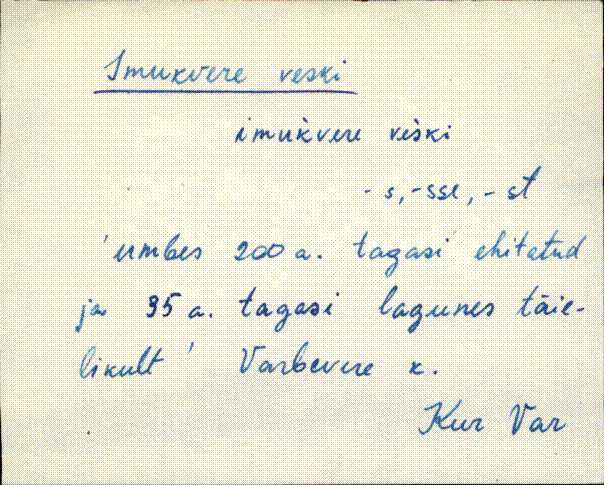 Imukvere veski
imuk̀vere vèski
- s, -sse, - st
'umbes 200 a. tagasi ehitatud
ja 35 a. tagasi lagunes täie-
likult' Varbevere k.
Kur Var